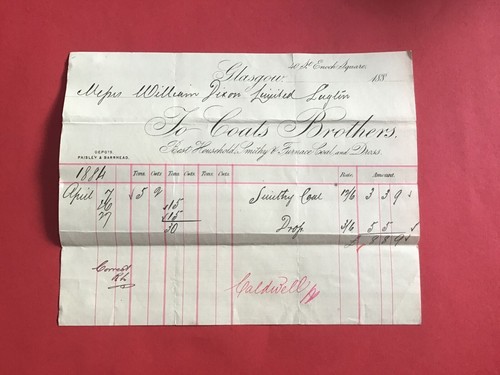 40 St. Enoch Square,
Glasgow 188
Messrs William Dixon Limited Lugton
To Coats Brothers,
DEPOTS, PAISLEY & BARRHEAD.
Best Household, Smithy & Furnace Coal and Dross.
1884 Tons Cwts. Tons Cwts. Tons Cwts. Rate. Amount.
April 7 5 9 Smithy Coal 12/6 3 3 9
26 15
27 15
30 Drop 3/6 5 5
£ 8 8 9
Correct
Caldwell